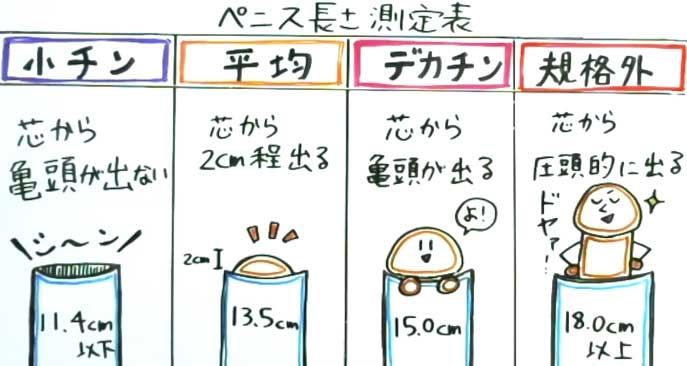 ペニス長さ測定表
小チン
平均
デカチン
規格外
芯から
亀頭が出ない
芯から
2cm程出る
芯から
亀頭が出る
芯から
圧頭的に出る
シ〜ン
2cm
よ!
ドヤァ!
11.4cm
以下
13.5cm
15.0cm
18.0cm
以上